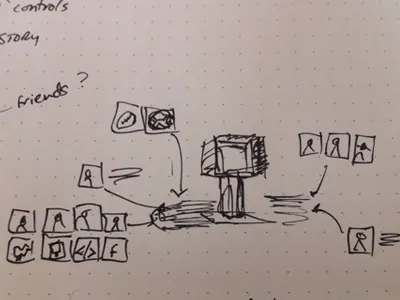 controls
STORY
friends?
</>
f